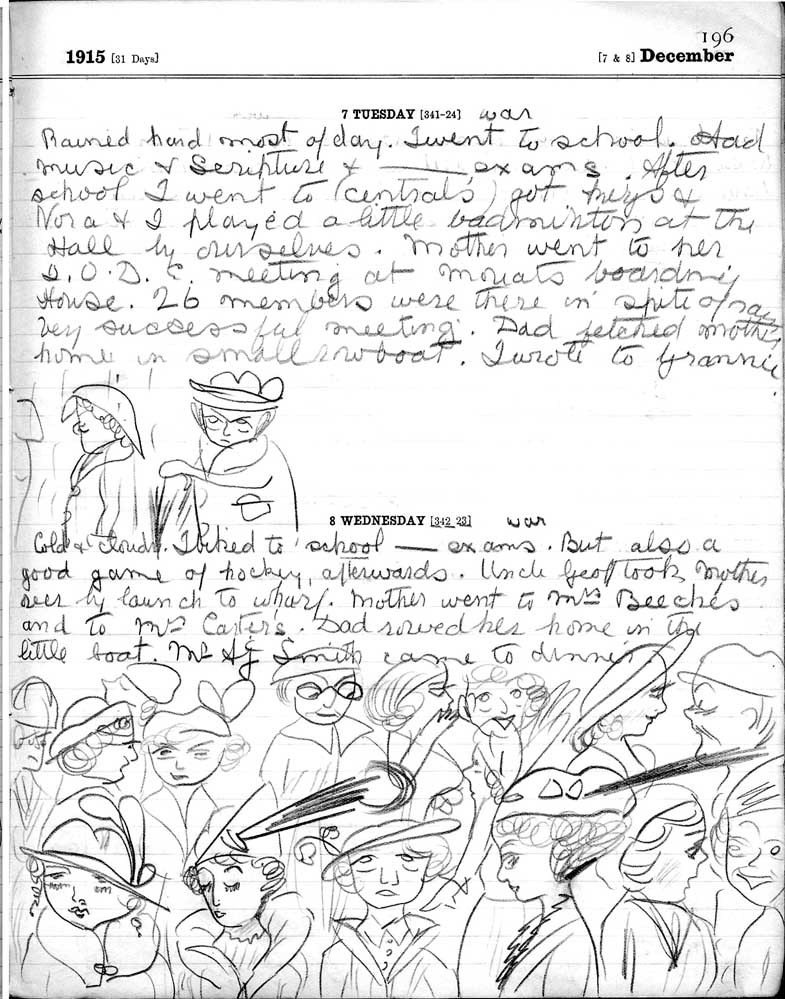 196
1915 [31 Days] [7 & 8] December
7 TUESDAY [341-24] war
Rained hard most of day. I went to school. Had
music & Scripture & —— exams. After
school I went to (centrals) got keys &
Nora & I played a little badminton at the
Hall by ourselves. Mother went to her
I.O.D.E. meeting at Mouats boarding
House. 26 members were there in spite of
Very successful meeting. Dad fetched mother
home in small rowboat. I wrote to Grannie
8 WEDNESDAY [342-23] war
Cold & cloudy. I biked to school —— exams. But also a
good game of hockey, afterwards. Uncle Geoff took Mother
over by launch to wharf. Mother went to Mrs Beeches
and to Mrs Carters. Dad rowed her home in the
little boat. Mr AG Smith came to dinner.